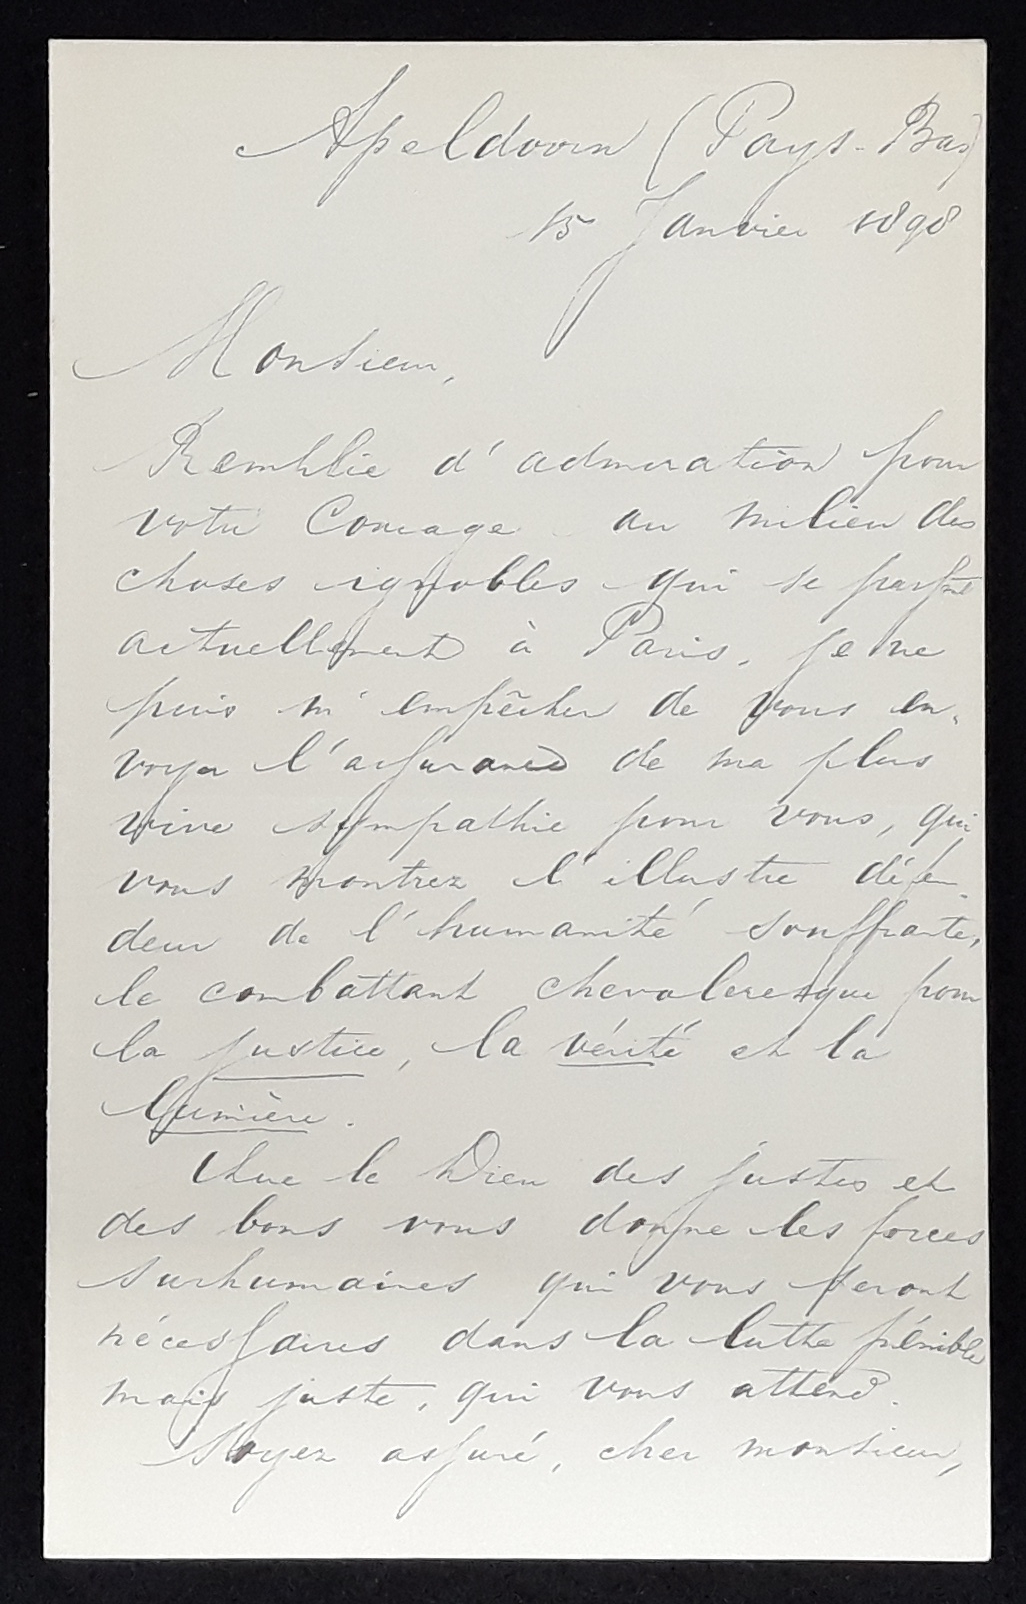 Apeldoorn (Pays-Bas)
15 Janvier 1898
Monsieur,
Remplie d'admiration pour
votre Courage au milieu des
choses ignobles qui se passent
actuellement à Paris, je ne
puis m'empêcher de vous en-
voyer l'assurance de ma plus
vive sympathie pour vous, qui
vous montrez l'illustre défen-
deur de l'humanité souffrante,
le combattant chevaleresque pour
la justice, la vérité et la
lumière.
Que le Dieu des justes et
des bons vous donne les forces
surhumaines qui vous seront
nécessaires dans la lutte pénible
mais juste, qui vous attend.
Soyez assuré, cher monsieur,